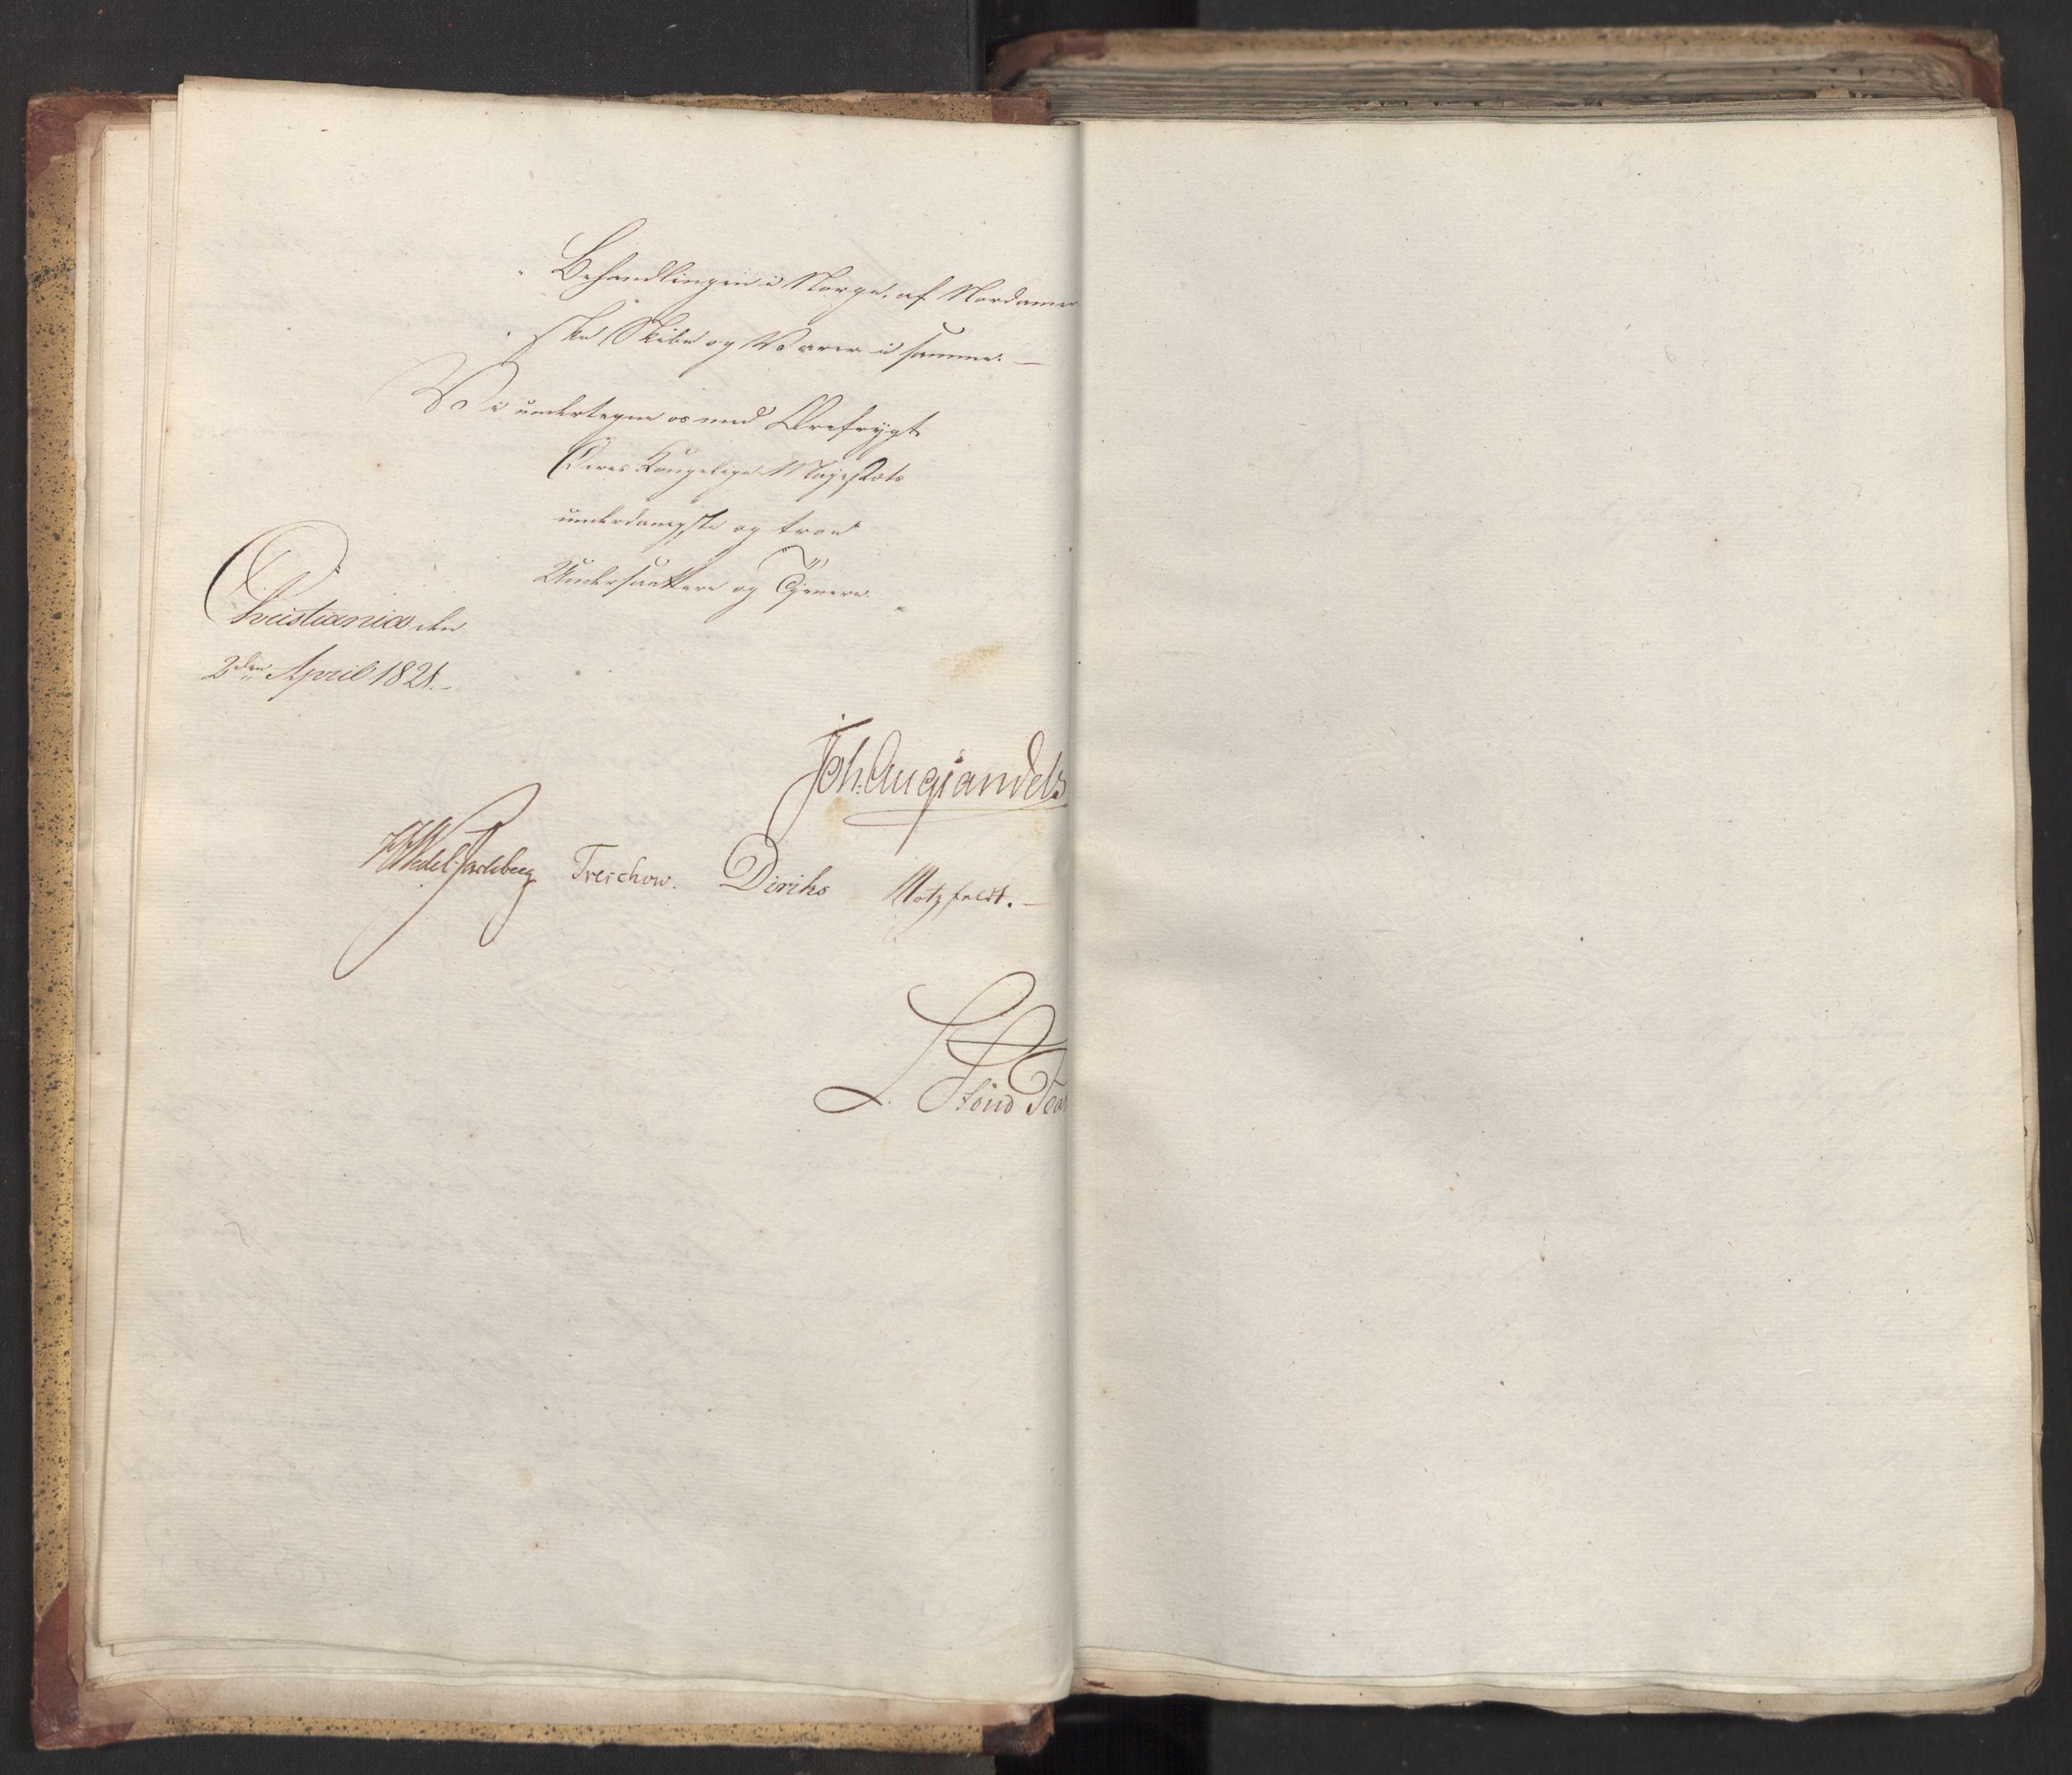 Behandlingen i Norge, af Nordamer
ske Skibe og Varer i samme. —
Vi undertegne os med Ærefrygt
Deres Kongelige Majestæts
underdanigste og troe
Undersaattere og Tjenere.
Christiania den
2den April 1821.
Joh: Aug: Sandels
HWedel Jarlsberg Treschow. Diriks Motzfeldt. —
L.